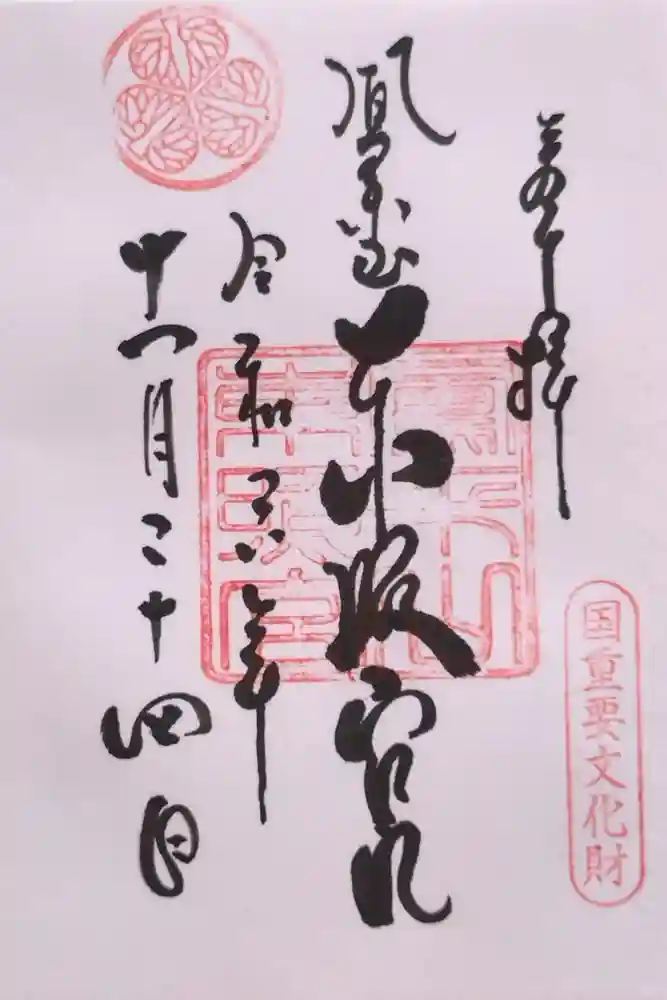 奉拝
鳳来山東照宮
令和六年
十一月二十四日
国重要文化財